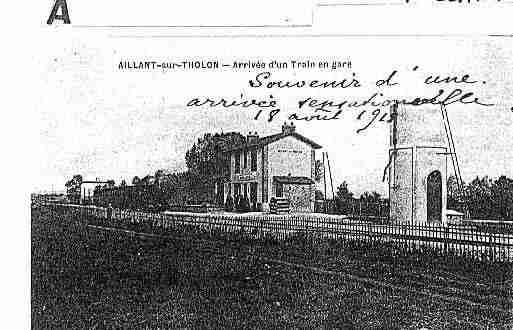 A
AILLANT-sur-THOLON — Arrivée d'un Train en gare
Souvenir d'une
arrivée sensationnelle
18 août